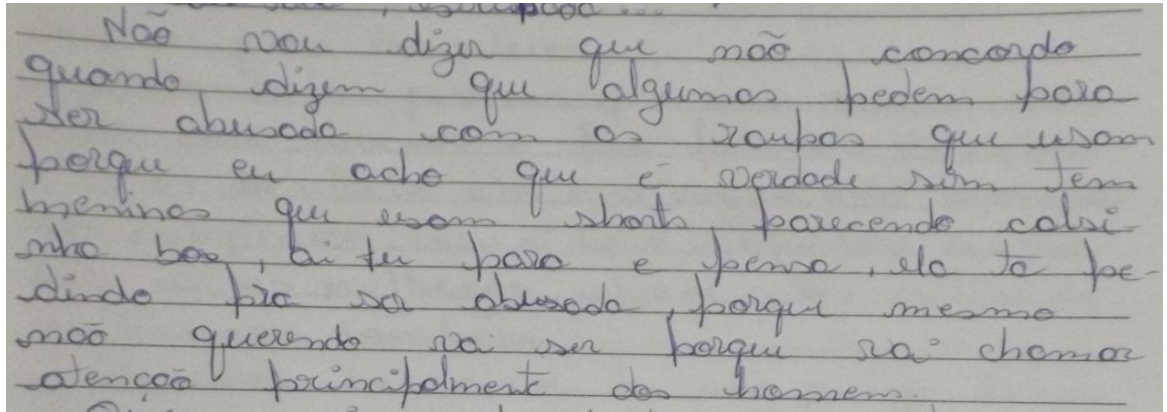 Não vou dizer que não concordo
quando dizem que algumas pedem para
ser abusada com as roupas que usam
porque eu acho que é verdade sim tem
meninas que usam short parecendo calsi-
nha boa, ai tu para e pensa, ela tá pe-
dindo pra ser abusada, porque mesmo
não querendo vai ser porque vai chamar
atenção principalmente dos homem.